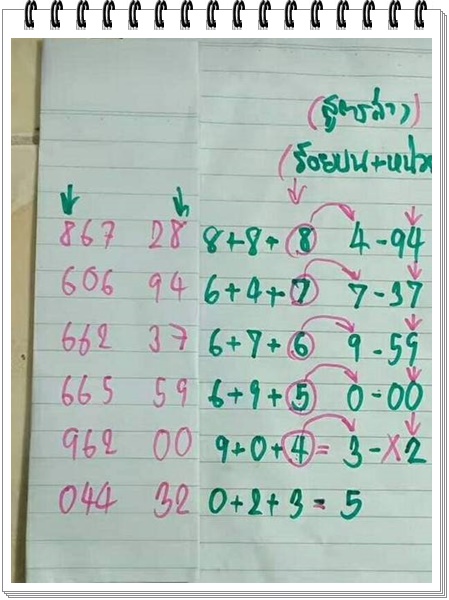 (สูตรล่าง)
(ร้อยบน+หน่วย
867 28 8+8+8 4-94
606 94 6+4+7 7-37
662 37 6+7+6 9-59
665 59 6+9+5 0-00
962 00 9+0+4= 3-X2
044 32 0+2+3= 5